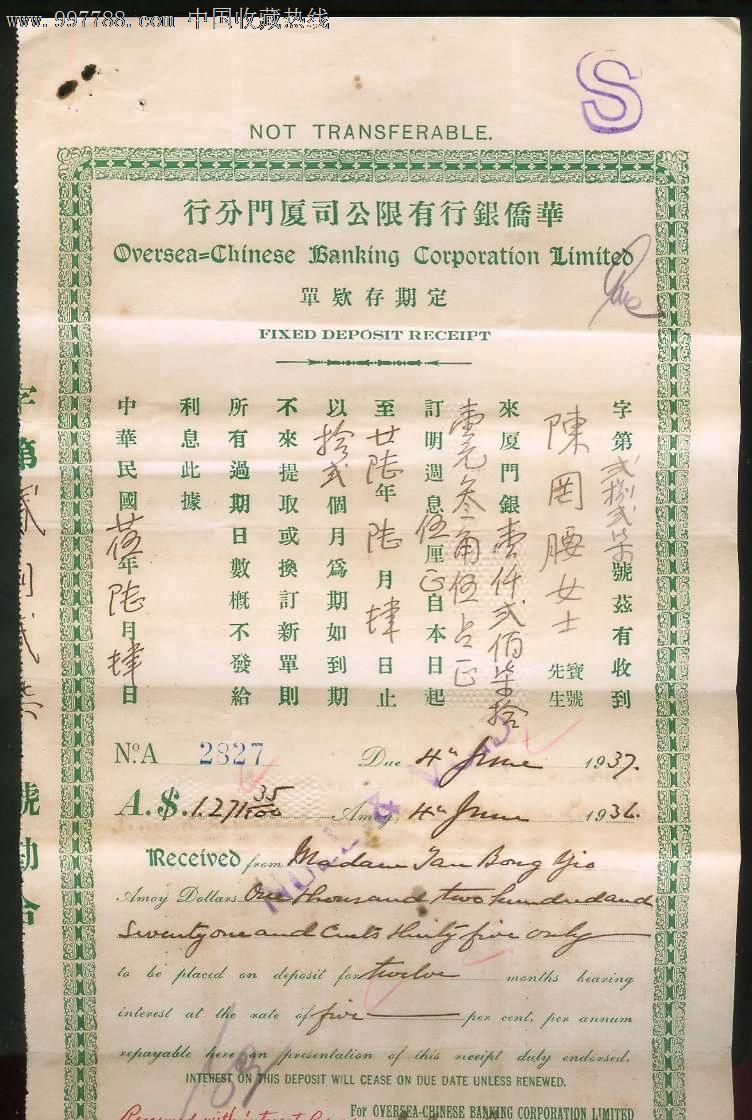 www.997788.com 中国收藏热线
S
NOT TRANSFERABLE.
行分門厦司公限有行銀僑華
Oversea=Chinese Banking Corporation Limited
單欵存期定
FIXED DEPOSIT RECEIPT
字第貳捌貳柒號茲有收到
陳罔腰女士 寶號 先生
來厦門銀壹仟貳佰柒拾
壹元叁角伍占正
訂明週息伍厘正自本日起
至廿陸年陸月肆日止
以拾貳個月爲期如到期
不來提取或換訂新單則
所有過期日數概不發給
利息此據
中華民國廿伍年陸月肆日
字第貳捌貳柒號勘合
No. A 2827 Due 4th June 1937.
A.$. 1271 35/100 Amoy, 4th June 1936.
Received from Madam Tan Bong Yio
Amoy Dollars One thousand two hundred and
Seventy one and Cents thirty five only
to be placed on deposit for twelve months bearing
interest at the rate of five per cent. per annum
repayable here on presentation of this receipt duly endorsed.
INTEREST ON THIS DEPOSIT WILL CEASE ON DUE DATE UNLESS RENEWED.
For OVERSEA-CHINESE BANKING CORPORATION LIMITED